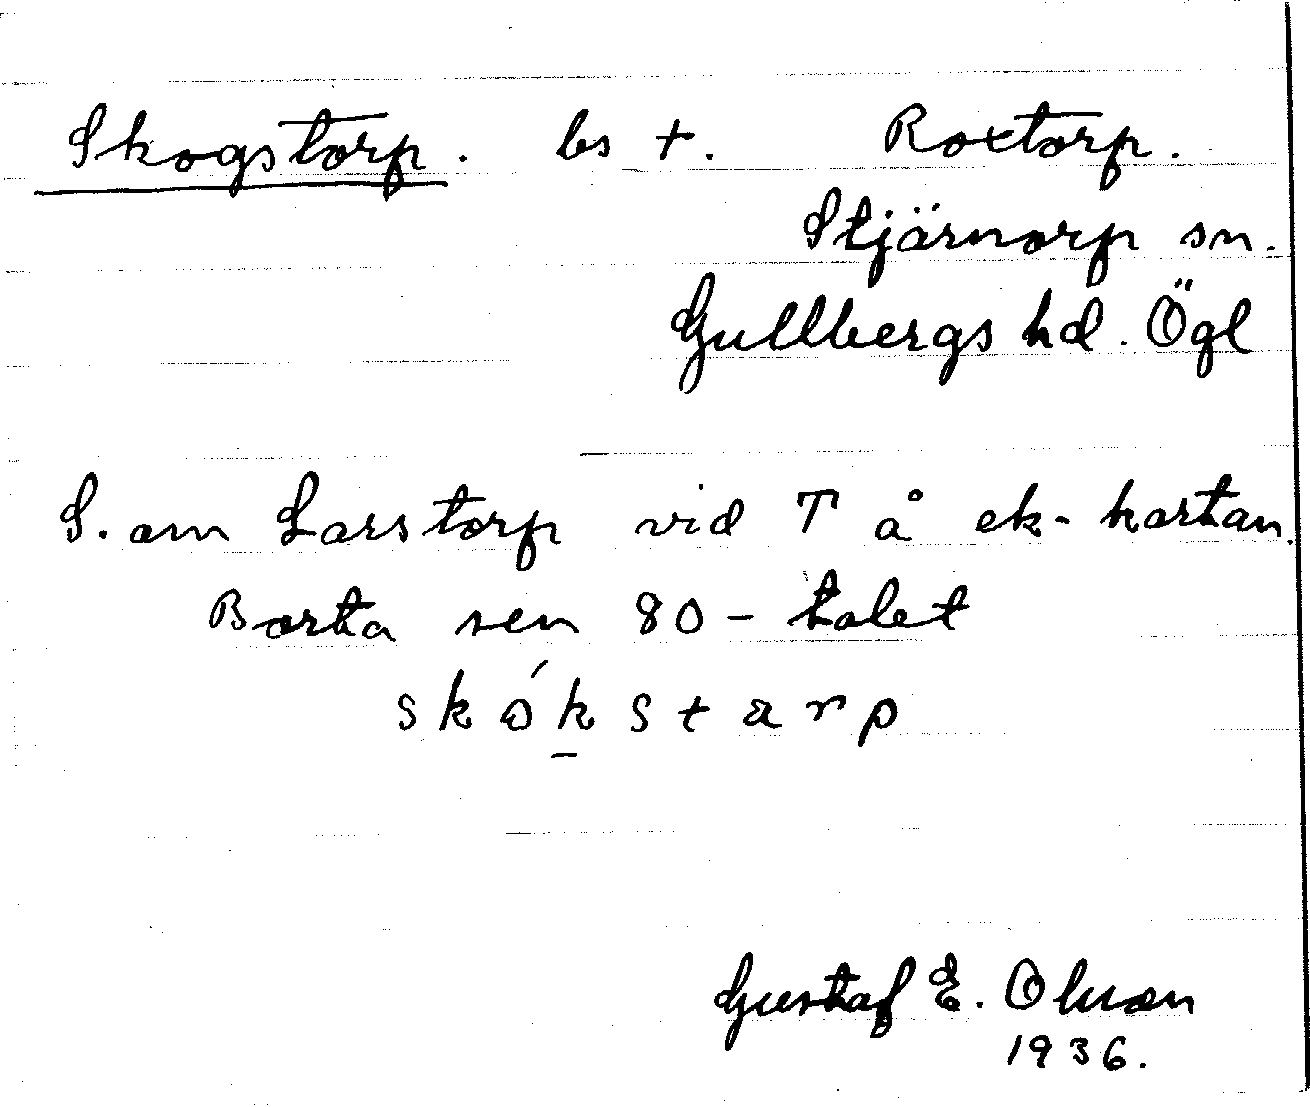 Skogstorp. bs +. Roxtorp.
Stjärnorp sn.
Gullbergs hd. Ögl
S. om Larstorp vid T å ek-kartan.
Borta sen 80-talet
skókstarp
Gustaf E. Olsson
1936.